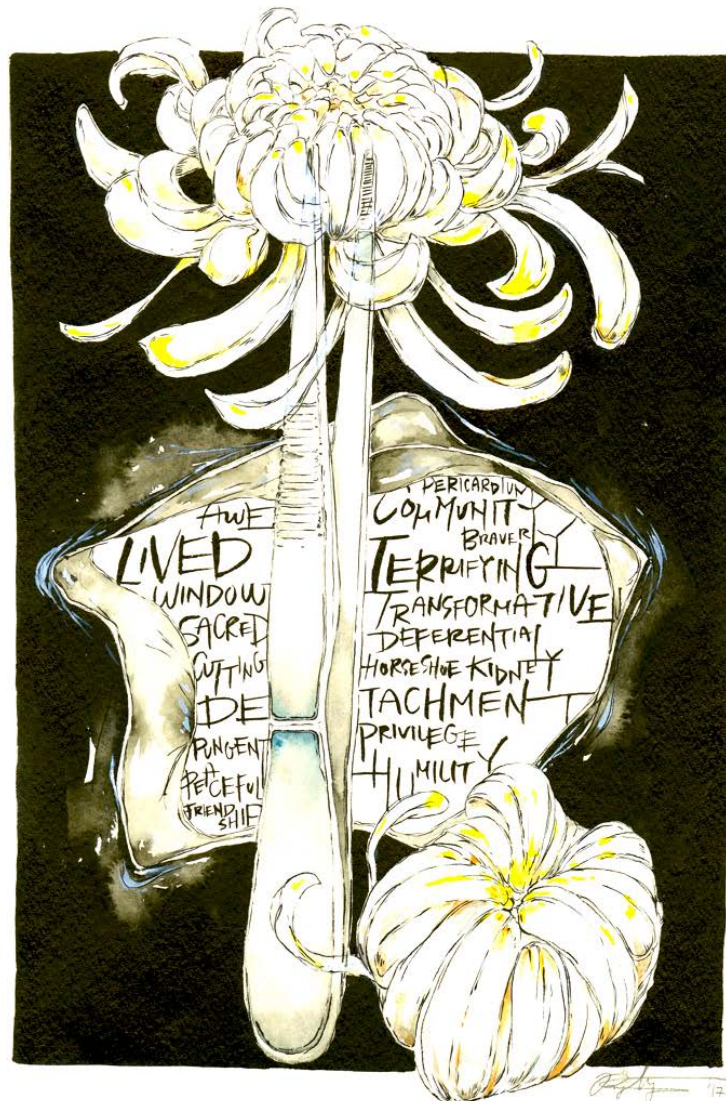 AWE
LIVED
WINDOW
SACRED
CUTTING
DE
PUNGENT
PEACEFUL
FRIEND
SHIP
PERICARDIUM
COMMUNITY
BRAVER
TERRIFYING
TRANSFORMATIVE
DEFERENTIAL
HORSESHOE KIDNEY
TACHMENT
PRIVILEGE
HUMILITY
'17